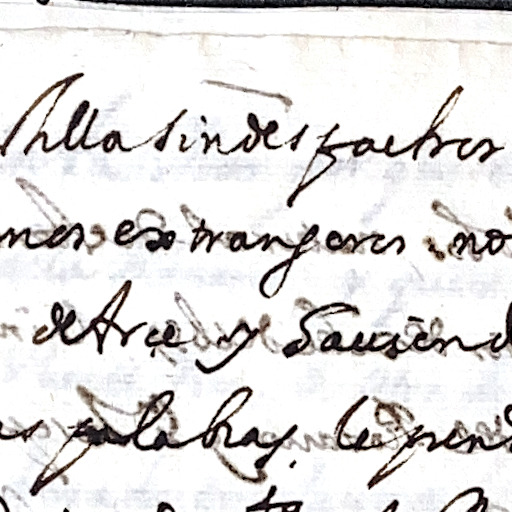 Villa sin despachos
nos extrangeros no
de Arce y Sausend
as palabras le pren